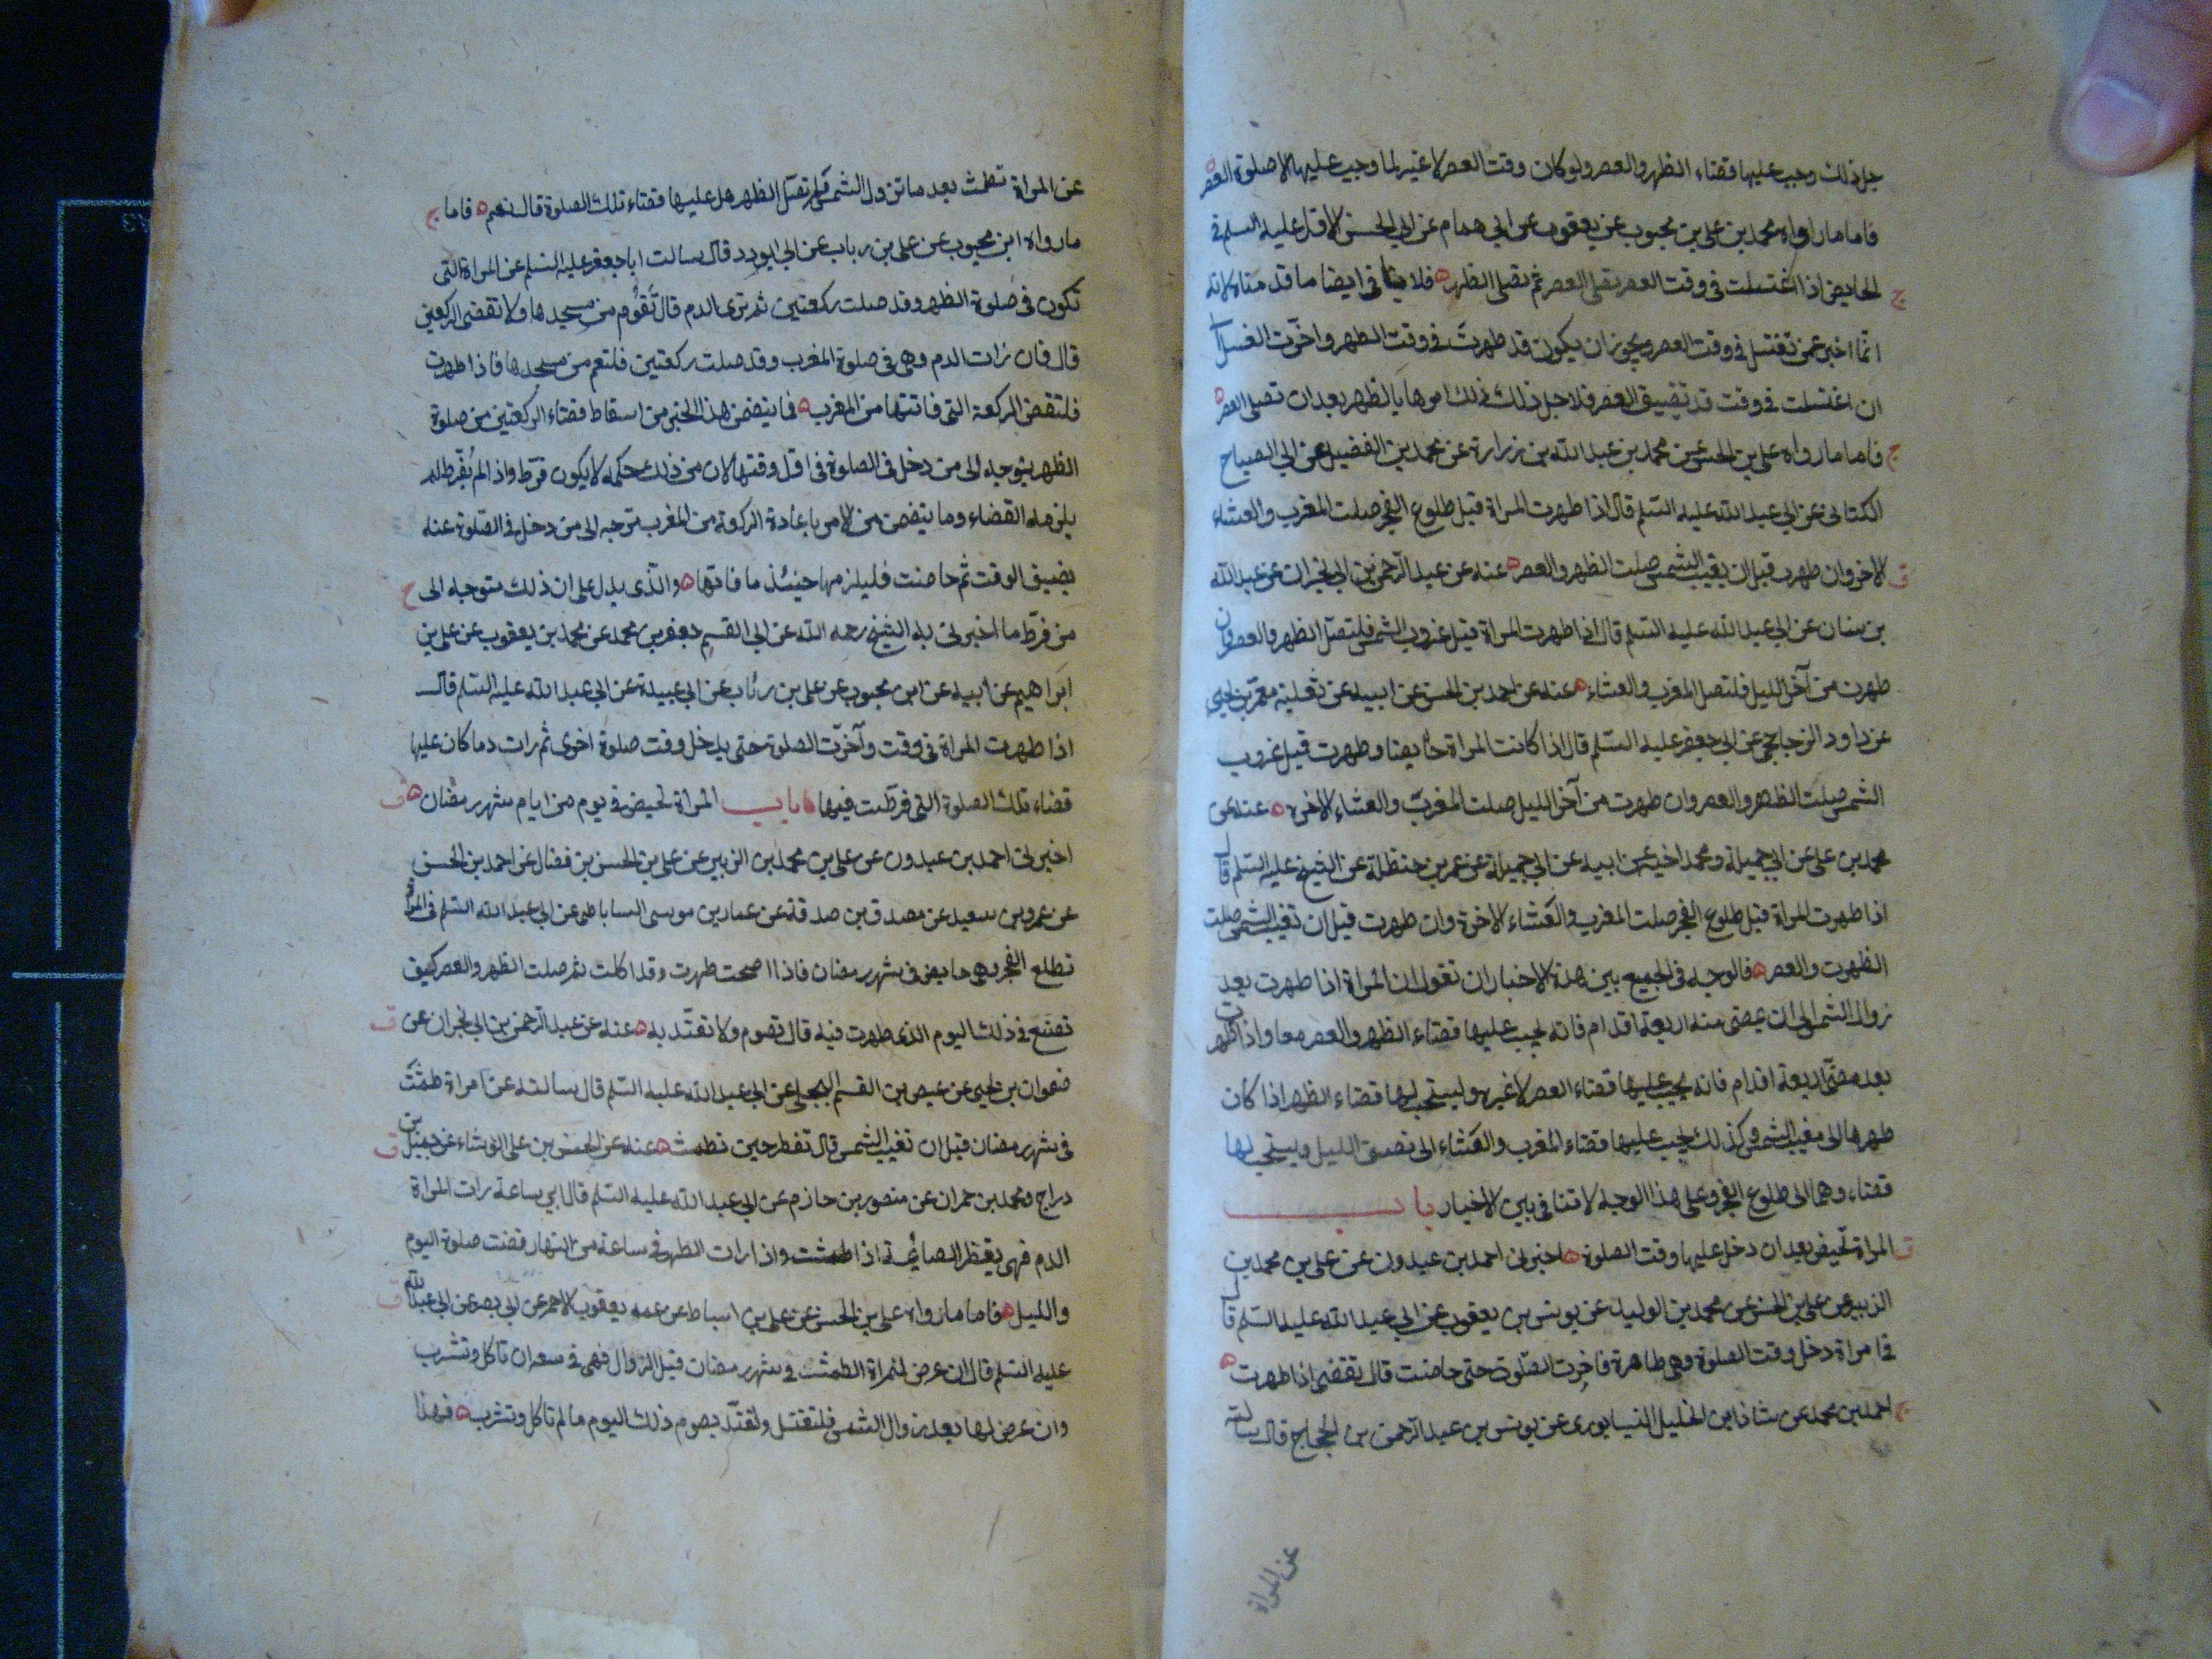 جل ذلك وجب عليها قضاء الظهر والعصر ولو كان وقت العصر لا غير لما وجب عليها الا صلوة العصر
فاما ما رواه محمد بن علي بن محبوب عن يعقوب عن ابي همام عن ابي الحسن الاول عليه السلم في
الحايض اذا اغتسلت في وقت العصر تصلى العصر ثم تصلى الظهر فلا ينافى ايضا ما قدمناه لانه
انما اخبر عمن تغتسل في وقت العصر ويجوز ان يكون قد طهرت في وقت الظهر واخرت الغسل الى
ان اغتسلت في وقت قد تضيق العصر فلاجل ذلك امرها بالظهر بعد ان تصلى العصر
فاما ما رواه علي بن الحسن عن محمد بن عبد الله بن زرارة عن محمد بن الفضيل عن ابي الصباح
الكناني عن ابي عبد الله عليه السلم قال اذا طهرت المراة قبل طلوع الفجر صلت المغرب والعشاء
الاخر وان طهرت قبل ان يغيب الشمس صلت الظهر والعصر عنه عن عبد الرحمن بن ابي نجران عن عبد الله
بن سنان عن ابي عبد الله عليه السلم قال اذا طهرت المراة قبل غروب الشمس فلتصل الظهر والعصر وان
طهرت من آخر الليل فلتصل المغرب والعشاء عنه عن احمد بن الحسن عن ابيه عن ثعلبة معمر بن يحيى
عن داود الزجاجي عن ابي جعفر عليه السلم قال اذا كانت المراة حايضا وطهرت قبل غروب
الشمس صلت الظهر والعصر وان طهرت من آخر الليل صلت المغرب والعشاء الاخرة عنه عن
محمد بن علي عن ابي جميلة ومحمد اخيه عن ابيه عن ابي جميلة عن عمر بن حنظلة عن الشيخ عليه السلم قال
اذا طهرت المراة قبل طلوع الفجر صلت المغرب والعشاء الاخرة وان طهرت قبل ان تغيب الشمس صلت
الظهر والعصر فالوجه في الجمع بين هذه الاخبار ان نقول ان المراة اذا طهرت بعد
زوال الشمس الى ان يمضى منه اربعة اقدام فانه يجب عليها قضاء الظهر والعصر معا واذا طهرت
بعد مضي اربعة اقدام فانه يجب عليها قضاء العصر لا غير ويستحب لها قضاء الظهر اذا كان
طهرها الى مغيب الشمس وكذلك يجب عليها قضاء المغرب والعشاء الى نصف الليل ويستحب لها
قضاء وهما الى طلوع الفجر وعلى هذا الوجه لا تنافي بين الاخبار باب
المراة تحيض بعد ان دخل عليها وقت الصلوة اخبرني احمد بن عبدون عن علي بن محمد بن
الزبير عن علي بن الحسن عن محمد بن الوليد عن يونس بن يعقوب عن ابي عبد الله عليه السلم قال
في امراة دخل وقت الصلوة وهي طاهرة فاخرت الصلوة حتى حاضت قال تقضى اذا طهرت
احمد بن محمد عن شاذان بن الخليل النيسابوري عن يونس بن عبد الرحمن بن الحجاج قال سالته
عن المراة
عن المراة تطمث بعد ما تزول الشمس ولم تصل الظهر هل عليها قضاء تلك الصلوة قال نعم فاما
ما رواه ابن محبوب عن علي بن رباب عن ابي الورد قال سالت ابا جعفر عليه السلم عن المراة التي
تكون في صلوة الظهر وقد صلت ركعتين ثم ترى الدم قال تقوم من مسجدها ولا تقضى الركعتين
قال فان رات الدم وهي في صلوة المغرب وقد صلت ركعتين فلتقم من مسجدها فاذا طهرت
فلتقض الركعة التي فاتتها من المغرب فما يتضمن هذا الخبر من اسقاط قضاء الركعتين من صلوة
الظهر يتوجه الى من دخل في الصلوة في اول وقتها لان من ذلك حكمه لا يكون فرط واذا لم يفرط لم
يلزمه القضاء وما يتضمن من الامر باعادة الركعة من المغرب متوجه الى من دخل في الصلوة عند
يضيق الوقت ثم حاضت فليلزمها حينئذ ما فاتها والذى يدل على ان ذلك متوجه الى
من فرط ما اخبرني به الشيخ رحمه الله عن ابي القسم جعفر بن محمد عن محمد بن يعقوب عن علي بن
ابراهيم عن ابيه عن ابن محبوب عن علي بن رئاب عن ابي عبيدة عن ابي عبد الله عليه السلم قال
اذا طهرت المراة في وقت وآخرت الصلوة حتى يدخل وقت صلوة اخرى ثم رات دما كان عليها
قضاء تلك الصلوة التي فرطت فيها باب المراة تحيض في يوم من ايام شهر رمضان
اخبرني احمد بن عبدون عن علي بن محمد بن الزبير عن علي بن الحسن بن فضال عن احمد بن الحسن
عن عمرو بن سعيد عن مصدق بن صدقة عن عمار بن موسى الساباطي عن ابي عبد الله السلم في المراة
تطلع الفجر وهي حايض في شهر رمضان فاذا اصبحت طهرت وقد اكلت ثم صلت الظهر والعصر كيف
تصنع في ذلك اليوم الذى طهرت فيه قال تصوم ولا تعتد به عنه عن عبد الرحمن بن ابي نجران عن
صفوان بن يحيى عن عيص بن القسم البجلي عن ابي عبد الله عليه السلم قال سالته عن امراة طمثت
في شهر رمضان قبل ان تغيب الشمس قال تفطر حين تطمث عنه عن الحسن بن علي الوشاء عن جميل بن
دراج ومحمد بن حمران عن منصور بن حازم عن ابي عبد الله عليه السلم قال اي ساعة رات المراة
الدم فهي يفطر الصائمة اذا طمثت واذا رات الطهر في ساعة من النهار قضت صلوة اليوم
والليل فاما ما رواه علي بن الحسن عن علي بن اسباط عن عمه يعقوب الاحمر عن ابي بصير عن ابي عبد الله
عليه السلم قال ان عرض للمراة الطمث في شهر رمضان قبل الزوال فهي في سعة ان تاكل وتشرب
وان عرض لها بعد زوال الشمس فلتغتسل ولتعتد بصوم ذلك اليوم ما لم تاكل وتشرب فهذا